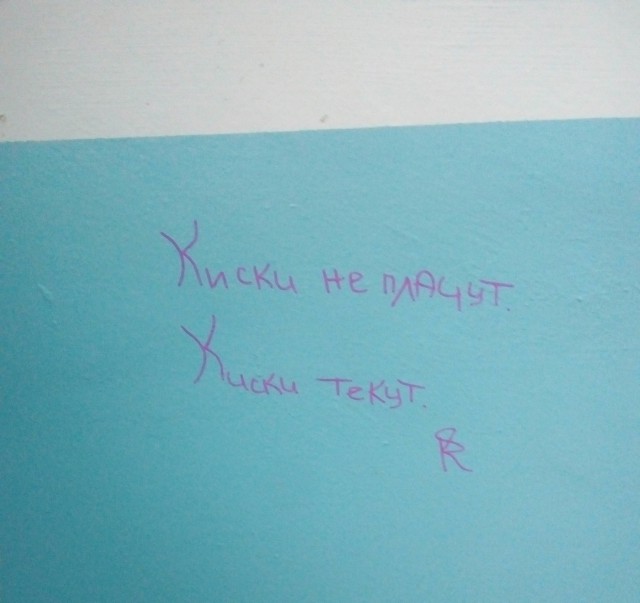 Киски не плачут.
Киски текут.